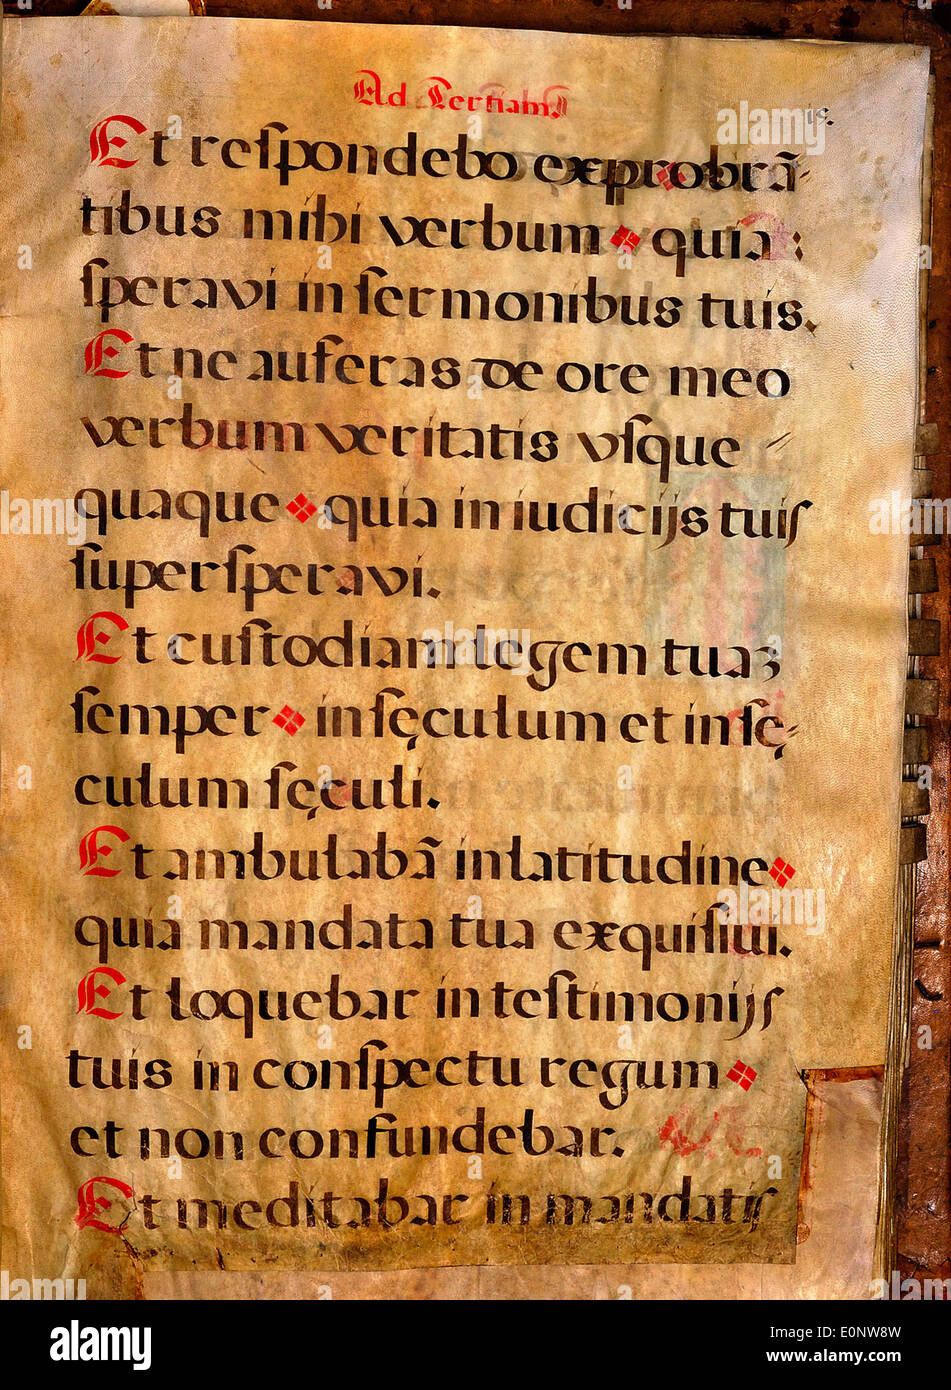 Ad Tertiam.
15.
Et reſpondebo exprobrā-
tibus mihi verbum quia
ſperavi in ſermonibus tuis.
Et ne auferas de ore meo
verbum veritatis vſque
quaque quia in iudicijs tuiſ
ſuperſperavi.
Et cuſtodiam legem tuaꝫ
ſemper in ſęculum et in ſę-
culum ſęculi.
Et ambulabā in latitudine
quia mandata tua exquiſiui.
Et loquebar in teſtimonijſ
tuis in conſpectu regum
et non confundebar.
Et meditabar in mandatiſ
alamy
alamy stock photo
E0NW8W
www.alamy.com